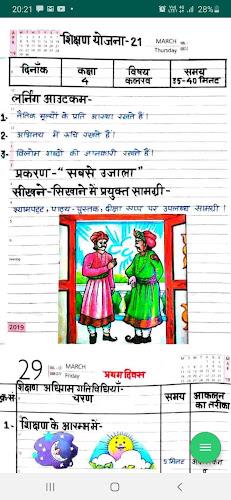 20:21
28%
शिक्षण योजना-21
MARCH
Thursday
दिनाँक कक्षा विषय समय
4 कलरव 35-40 मिनट
लर्निंग आउटकम-
1- नैतिक मूल्यों के प्रति आस्था रखते हैं।
2- अभिनय में रुचि रखते हैं।
3- विलोम शब्दों की जानकारी रखते हैं।
प्रकरण-"सबसे उजाला"
सीखने-सिखाने में प्रयुक्त सामग्री-
श्यामपट्ट, पाठ्य-पुस्तक, दीक्षा एप्प पर उपलब्ध सामग्री।
2019
29 MARCH
Friday
प्रथम दिवस
शिक्षण अधिगम गतिविधियाँ- समय आकलन
क्र.सं. चरण का तरीका
1- शिक्षण के आरम्भ में-
5 मिनट